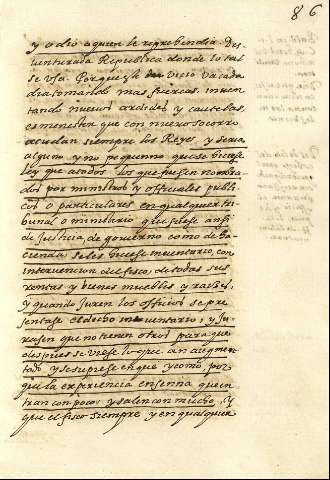 86
y odio a quien le reprehendia. Des
venturada Republica donde lo tal
se usa. Porque si el vicio va cada
dia tomando mas fuerças, inven
tando nuevos ardides y cautelas,
es menester que con nuevo socorro
acudan siempre los Reyes, y seria
alguno y no pequenno que se hiciese
ley que a todos los que fuesen nombra
dos por ministros y officiales publi
cos o particulares en qualquier tri
bunal o ministerio que fuese ansi
de Justicia, de govierno como de ha
cienda se les hiciese inventario, con
intervencion del fisco, de todas sus
rentas y bienes muebles y raices,
y quando juren los officios se pre
sentase el dicho inventario, y ju
rasen que no tienen otros para que
despues se viese lo que an augmen
tado y se supiese el que y como, por
que la experiencia ensenna que en
tran con poco y salen con mucho, y
que el fisco siempre y en qualquier